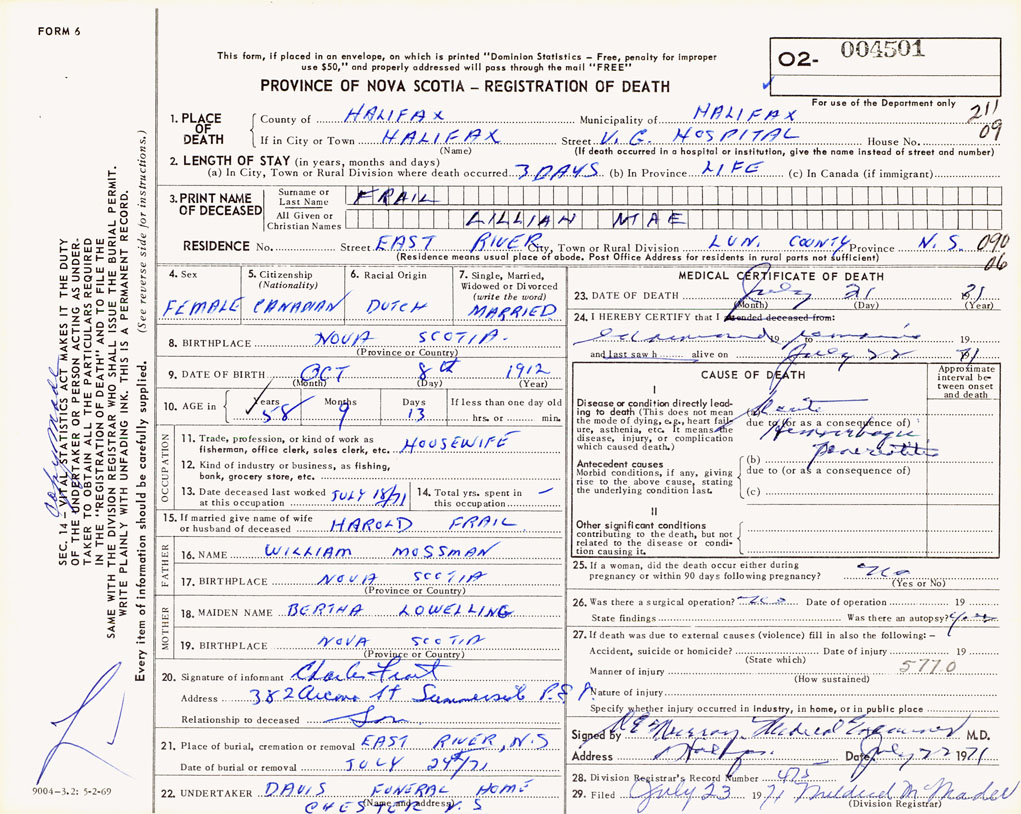 FORM 6
O2- 004501
This form, if placed in an envelope, on which is printed "Dominion Statistics – Free, penalty for improper
use $50," and properly addressed will pass through the mail "FREE"
PROVINCE OF NOVA SCOTIA – REGISTRATION OF DEATH
For use of the Department only
211
09
1. PLACE OF DEATH
County of HALIFAX Municipality of HALIFAX
If in City or Town HALIFAX Street V. G. HOSPITAL House No.
(Name) (If death occurred in a hospital or institution, give the name instead of street and number)
2. LENGTH OF STAY (in years, months and days)
(a) In City, Town or Rural Division where death occurred 3 DAYS (b) In Province LIFE (c) In Canada (if immigrant)
3. PRINT NAME OF DECEASED
Surname or Last Name FRAIL
All Given or Christian Names LILLIAN MAE
RESIDENCE No. Street EAST RIVER City, Town or Rural Division LUN. COUNTY Province N. S. 090
06
(Residence means usual place of abode. Post Office Address for residents in rural parts not sufficient)
4. Sex FEMALE
5. Citizenship (Nationality) CANADIAN
6. Racial Origin DUTCH
7. Single, Married, Widowed or Divorced (write the word) MARRIED
8. BIRTHPLACE NOVA SCOTIA.
(Province or Country)
9. DATE OF BIRTH OCT 8th 1912
(Month) (Day) (Year)
10. AGE in Years 58 Months 9 Days 13 If less than one day old hrs. or min.
OCCUPATION
11. Trade, profession, or kind of work as fisherman, office clerk, sales clerk, etc. HOUSEWIFE
12. Kind of industry or business, as fishing, bank, grocery store, etc.
13. Date deceased last worked at this occupation JULY 18/71
14. Total yrs. spent in this occupation –
15. If married give name of wife or husband of deceased HAROLD FRAIL
FATHER
16. NAME WILLIAM MOSSMAN
17. BIRTHPLACE NOVA SCOTIA
(Province or Country)
MOTHER
18. MAIDEN NAME BERTHA LOWELLING
19. BIRTHPLACE NOVA SCOTIA
(Province or Country)
20. Signature of informant Charles Frail
Address 382 St Summerside P.E.I.
Relationship to deceased Son
21. Place of burial, cremation or removal EAST RIVER, N.S
Date of burial or removal JULY 24th/71
22. UNDERTAKER DAVIS FUNERAL HOME
(Name and address) CHESTER N. S
MEDICAL CERTIFICATE OF DEATH
23. DATE OF DEATH July 21 1971
(Month) (Day) (Year)
24. I HEREBY CERTIFY that I attended deceased from:
19 remains 19
and last saw h alive on July 22 1971
CAUSE OF DEATH
Approximate interval between onset and death
I
Disease or condition directly leading to death (This does not mean the mode of dying, e.g., heart failure, asthenia, etc. It means the disease, injury, or complication which caused death.)
(a) Acute
due to (or as a consequence of)
Hemorrhagic
Pancreatitis
Antecedent causes
Morbid conditions, if any, giving rise to the above cause, stating the underlying condition last.
(b)
due to (or as a consequence of)
(c)
II
Other significant conditions contributing to the death, but not related to the disease or condition causing it.
25. If a woman, did the death occur either during pregnancy or within 90 days following pregnancy? No
(Yes or No)
26. Was there a surgical operation? No Date of operation 19
State findings Was there an autopsy? Yes
27. If death was due to external causes (violence) fill in also the following: –
Accident, suicide or homicide? Date of injury 19
(State which)
Manner of injury 5770
(How sustained)
Nature of injury
Specify whether injury occurred in industry, in home, or in public place
Signed by R E Murray Medical Examiner M.D.
Address Halifax Date July 22 1971
28. Division Registrar's Record Number 475
29. Filed July 23 1971 Mildred M Mader
(Division Registrar)
SEC. 14 – VITAL STATISTICS ACT MAKES IT THE DUTY
OF THE UNDERTAKER OR PERSON ACTING AS UNDER-
TAKER TO OBTAIN ALL THE PARTICULARS REQUIRED
IN THE "REGISTRATION OF DEATH" AND TO FILE THE
SAME WITH THE DIVISION REGISTRAR WHO SHALL ISSUE THE BURIAL PERMIT.
WRITE PLAINLY WITH UNFADING INK. THIS IS A PERMANENT RECORD.
Every item of information should be carefully supplied. (See reverse side for instructions.)
copy made
9004-3.2: 5-2-69